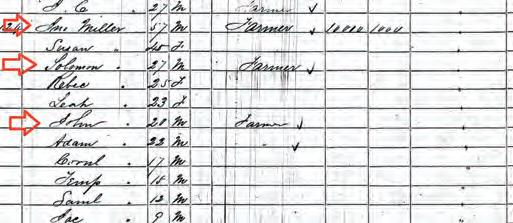 J. C. 27 M Farmer ✓
124 Jno Miller 57 M Farmer ✓ 10000 1000
Susan " 45 F
Solomon " 27 M Farmer ✓
Rebec " 25 F
Leah " 23 F
John " 20 M Farmer ✓
Adam " 22 M ✓
Cornl " 17 M
Temp " 15 M
Saml " 12 M
Jac " 9 M